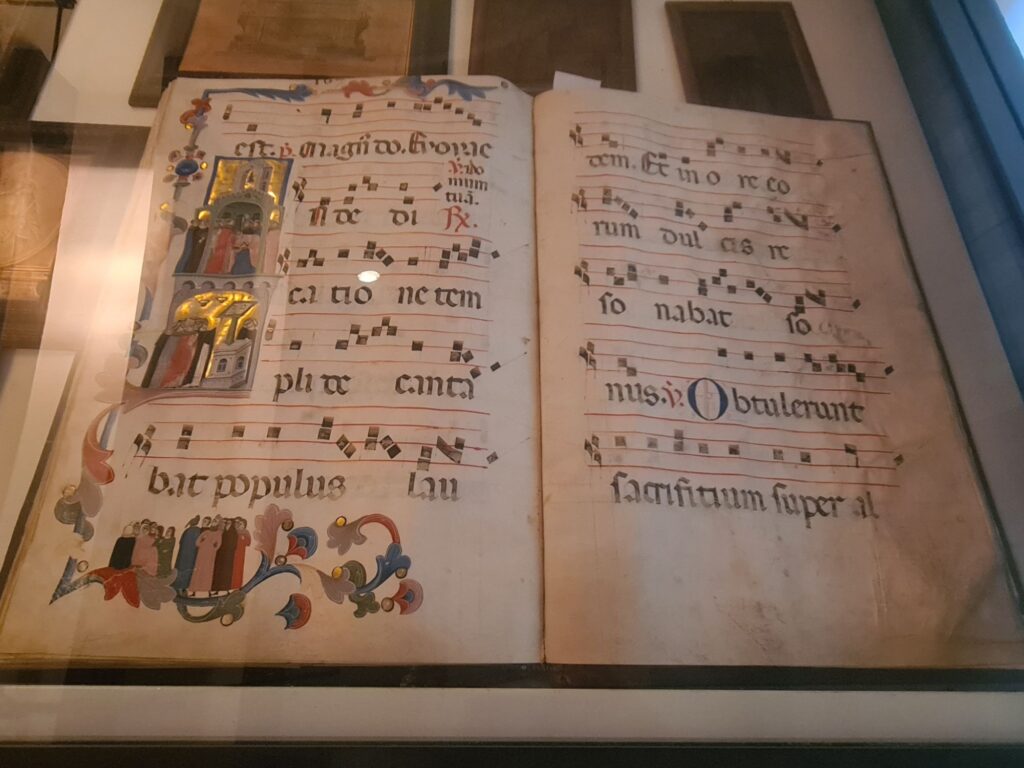 est. ℣. Magñ do. Evovae
℣. do
mum
tuā.
In de di ℟.
ca tio ne tem
pli de canta
bat populus lau
dem. Et in o re eo
rum dul cis re
so nabat so
nus. ℣. Obtulerunt
sacrificium super al